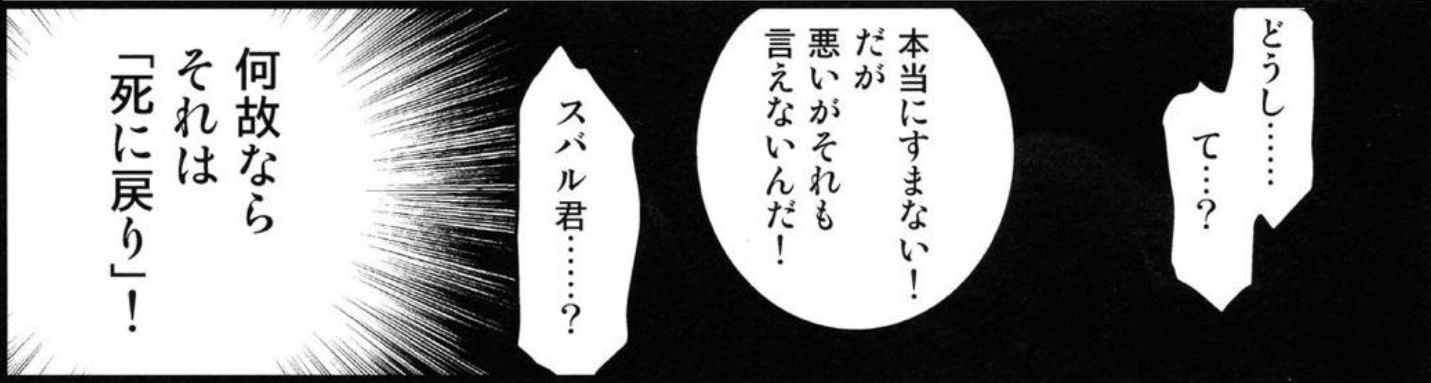 どうし……
て…？
本当にすまない！
だが
悪いがそれも
言えないんだ！
スバル君……？
何故なら
それは
「死に戻り」！